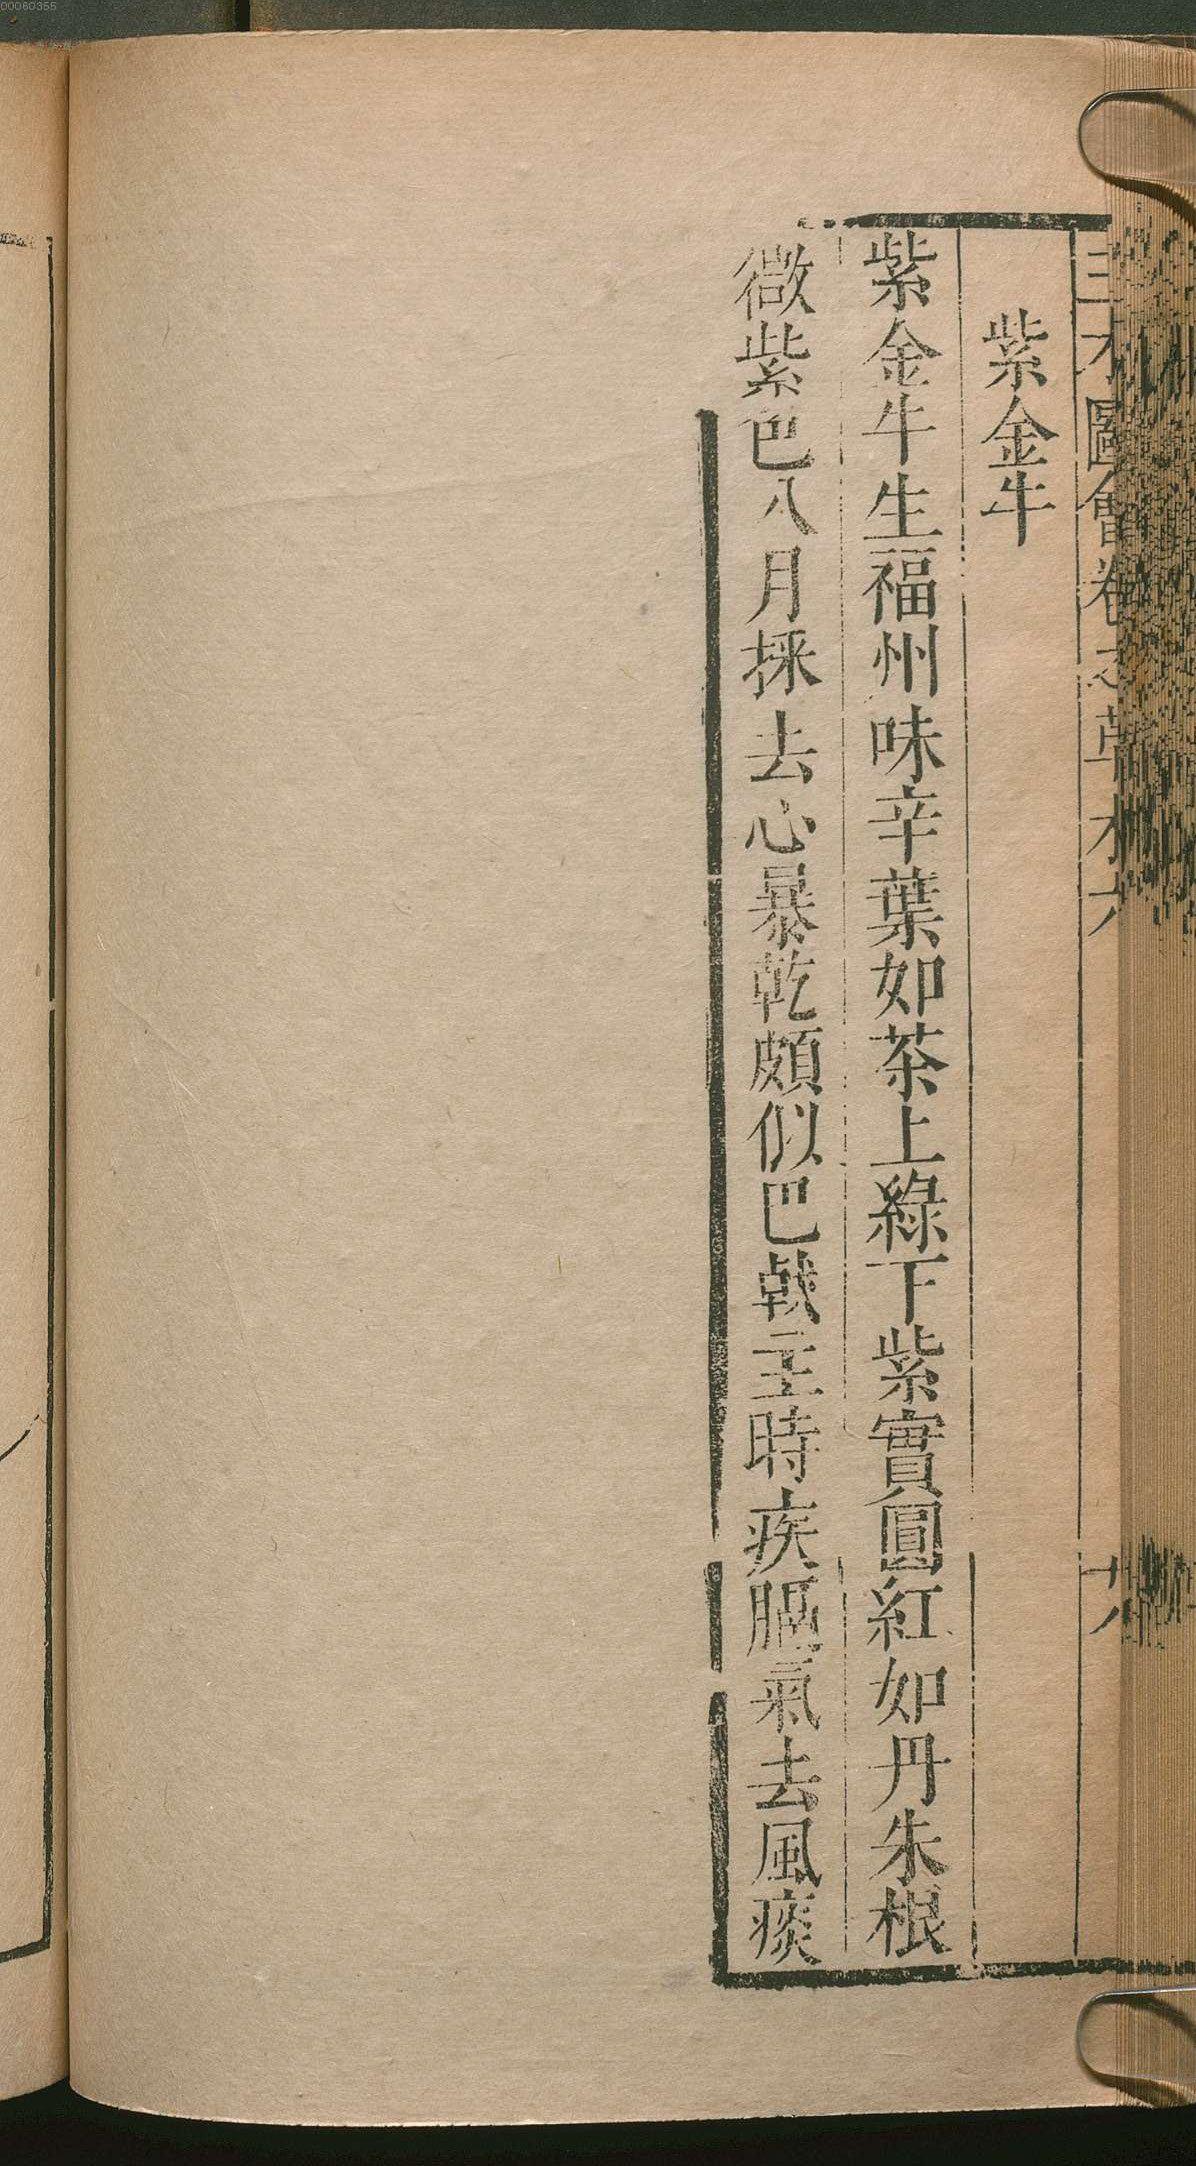 三才圖會卷之草木六 廿八
紫金牛
紫金牛生福州味辛葉如茶上綠下紫實圓紅如丹朱根
微紫色八月採去心暴乾頗似巴戟主時疾膈氣去風痰
00060355